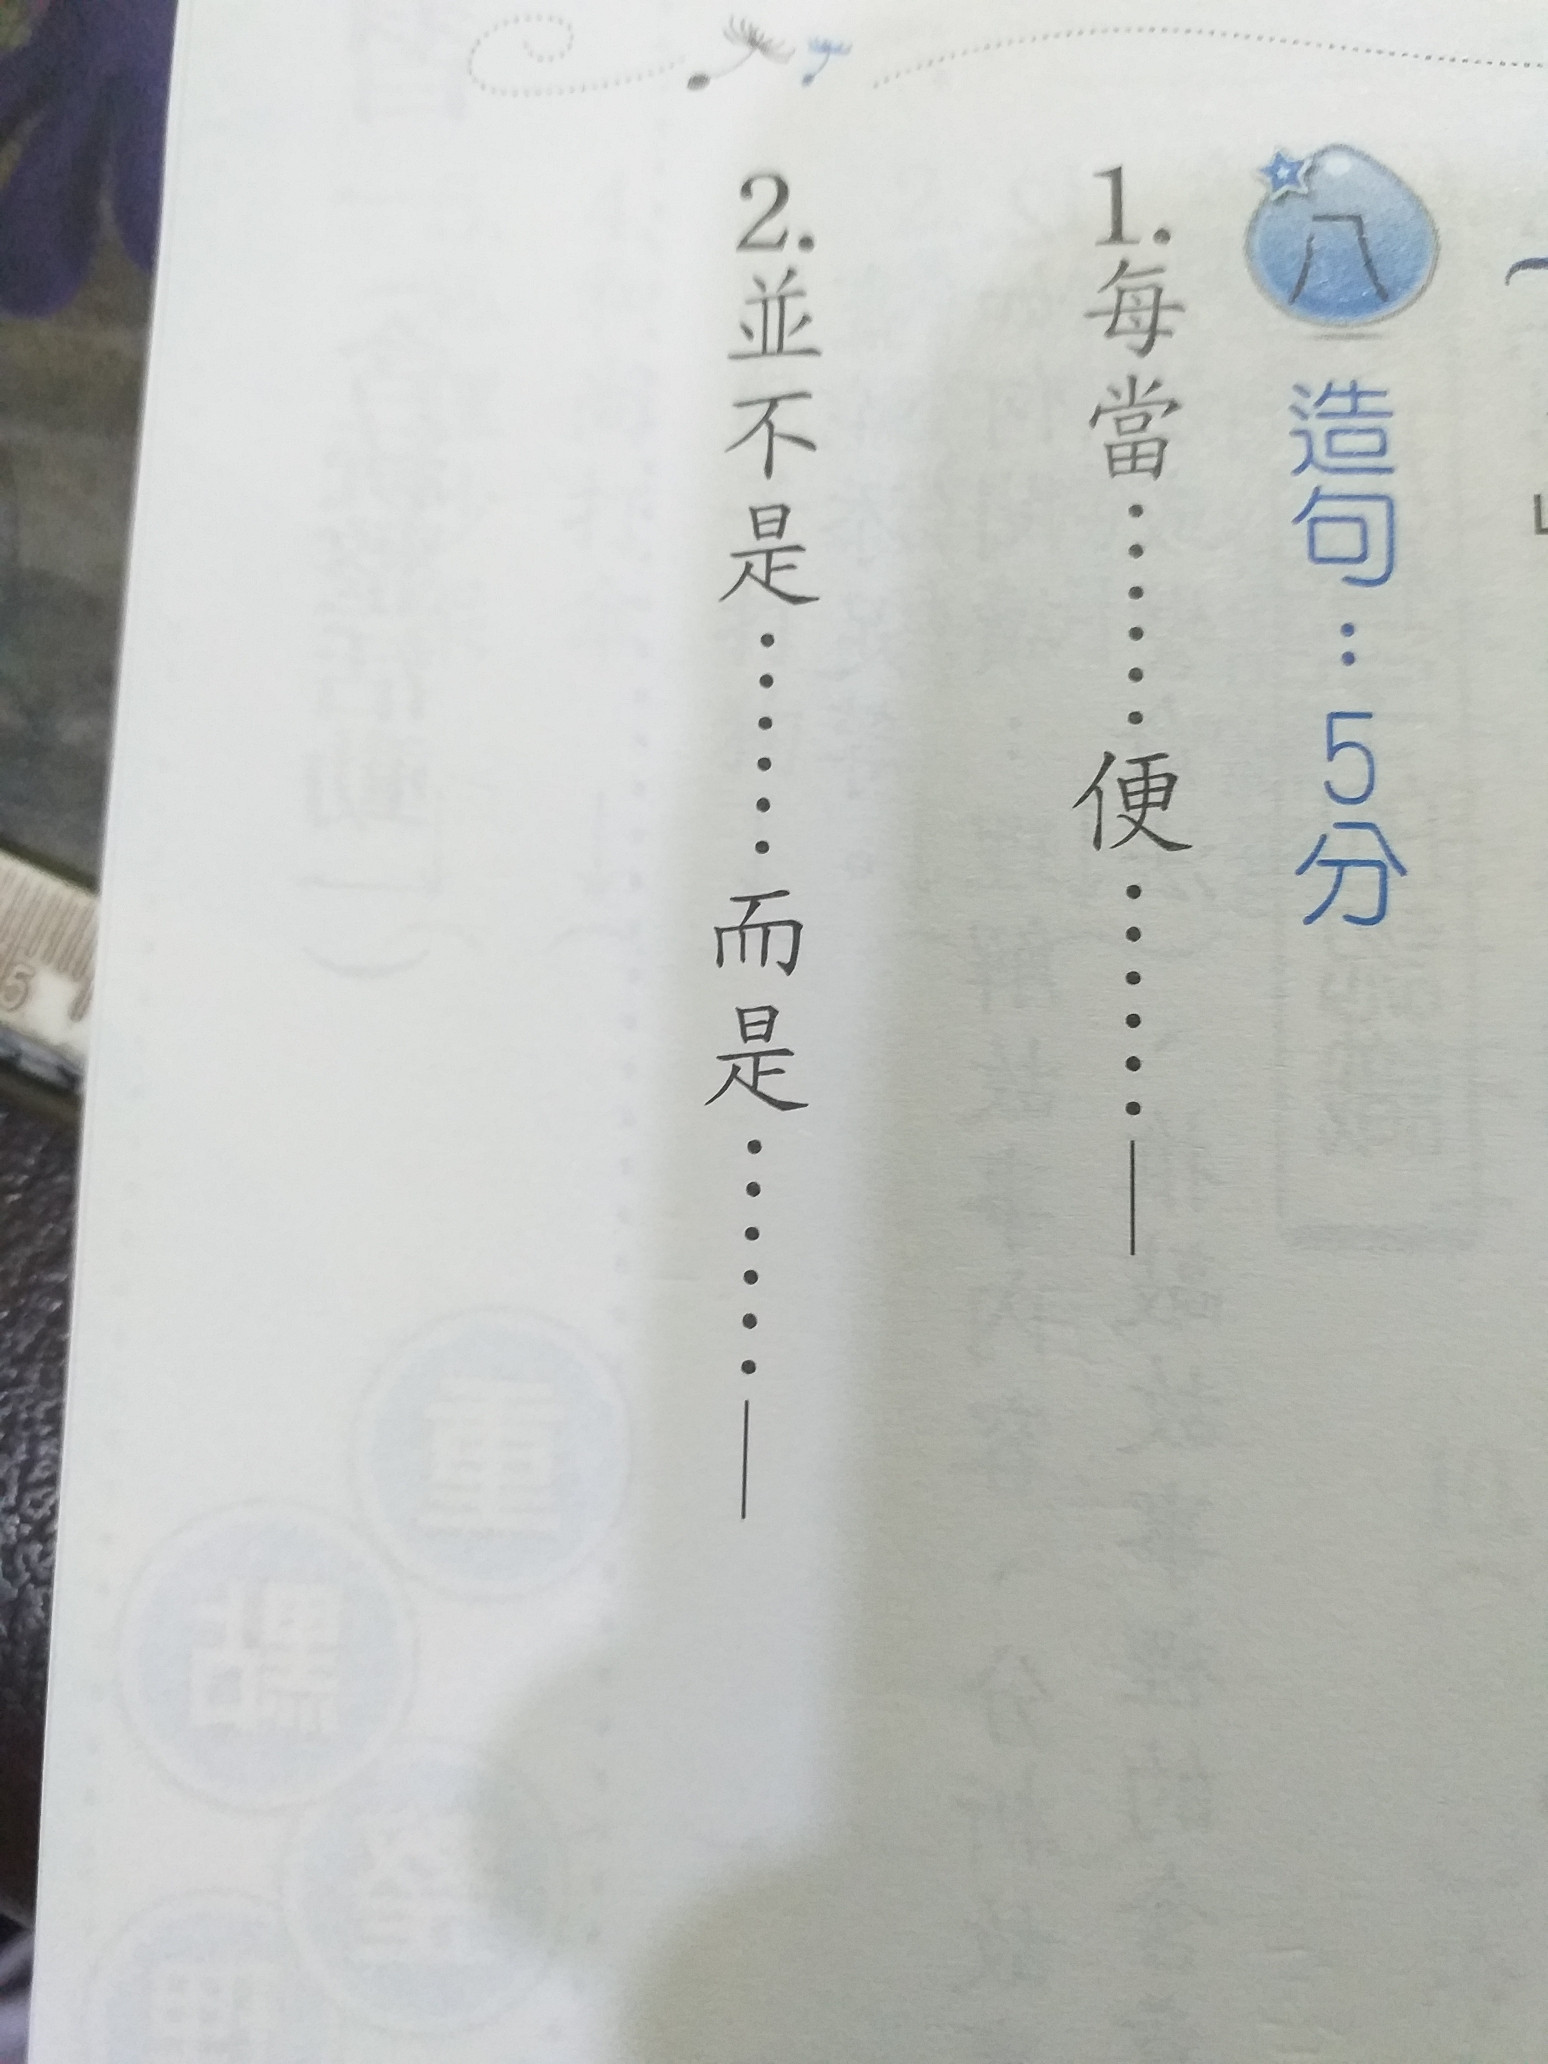 八 造句：5分
1.每當……便……—
2.並不是……而是……—
5